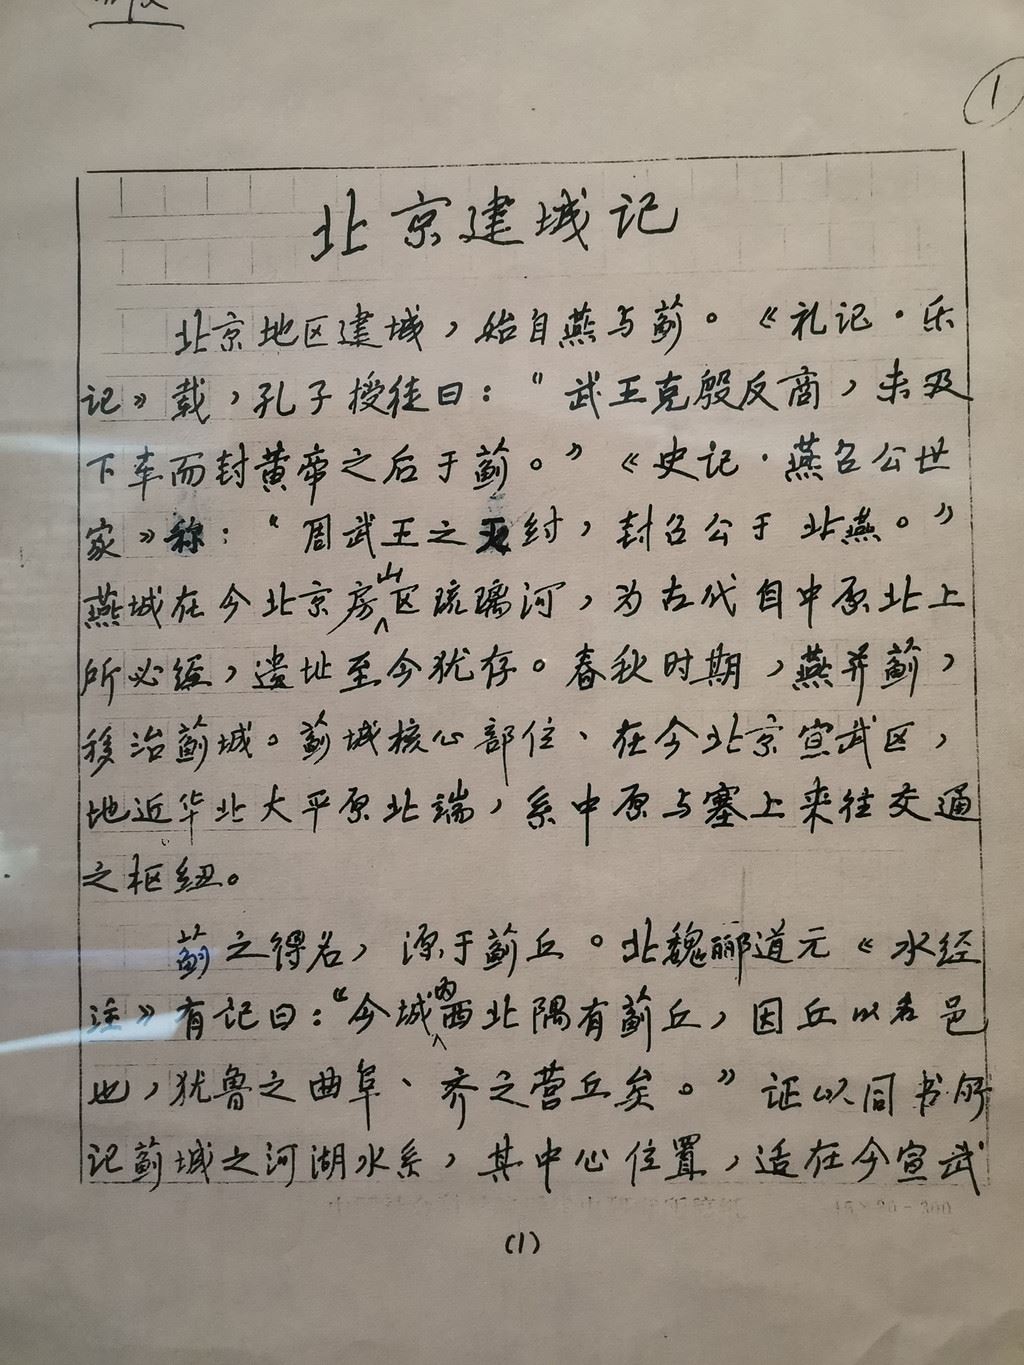 ①
北京建城记
北京地区建城，始自燕与蓟。《礼记·乐
记》载，孔子授徒曰："武王克殷反商，未及
下车而封黄帝之后于蓟。"《史记·燕召公世
家》称："周武王之灭纣，封召公于北燕。"
燕城在今北京房山区琉璃河，为古代自中原北上
所必经，遗址至今犹存。春秋时期，燕并蓟，
移治蓟城。蓟城核心部位、在今北京宣武区，
地近华北大平原北端，系中原与塞上来往交通
之枢纽。
蓟之得名，源于蓟丘。北魏郦道元《水经
注》有记曰："今城内西北隅有蓟丘，因丘以名邑
也，犹鲁之曲阜、齐之营丘矣。"证以同书所
记蓟城之河湖水系，其中心位置，适在今宣武
15×20=300
(1)